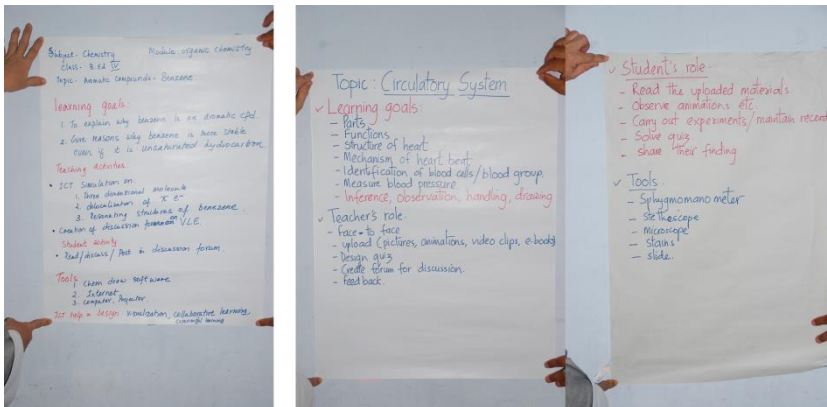 Subject - Chemistry Module: organic chemistry
class - B.Ed IV
Topic - Aromatic Compounds - Benzene
Learning goals:
1. To explain why benzene is an aromatic cpd.
2. Give reasons why benzene is more stable
even if it is unsaturated hydrocarbon.
Teaching activities
• ICT Simulation on
1. Three dimentional molecule
2. delocalization of π e-
3. Resonating structures of benezene.
• Creation of discussion on VLE.
Student activity
• Read/discuss/Post in discussion forum.
Tools
1. Chem draw software
2. Internet
3. Computer, Projector
ICT help in design: Visualization, Collaborative learning,
Topic: Circulatory System
✓ Learning goals:
- Parts
- Functions
- Structure of heart
- Mechanism of heart beat
- Identification of blood cells/blood group.
- Measure blood pressure.
- Inference, observation, handling, drawing
✓ Teacher's role
- Face-to face
- upload (pictures, animations, video clips, e-books)
- Design quiz
- Create forum for discussion.
- Feedback.
✓ Student's role
- Read the uploaded materials
- Observe animations etc
- Carry out experiments/maintain record
- Solve quiz.
- share their finding
✓ Tools
- Sphygmomano meter
- stethoscope
- microscope
- stains
- slide.